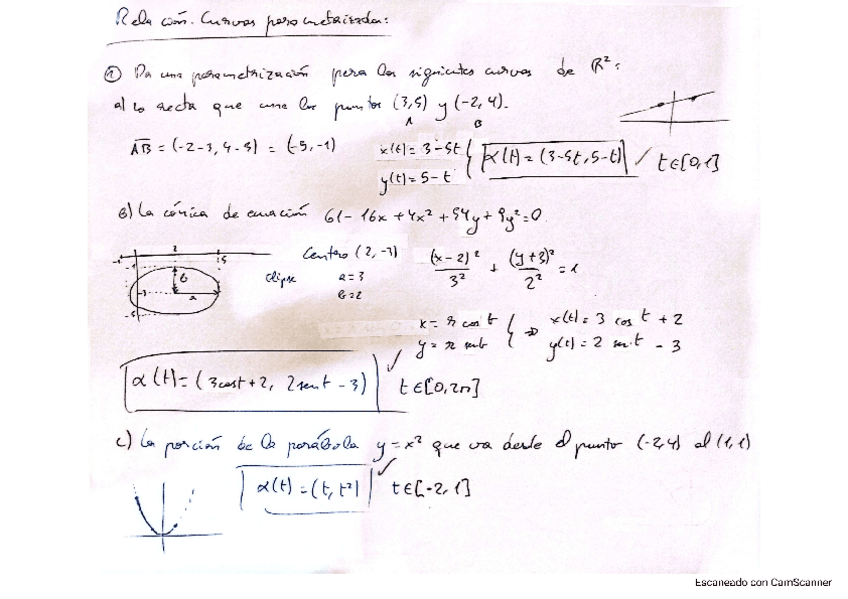 Relación. Curvas parametrizadas:
① Da una parametrización para las siguientes curvas de R²:
a) la recta que une los puntos (3,5) y (-2,4).
A B
AB = (-2-3, 4-5) = (-5,-1)
x(t) = 3-5t
y(t) = 5-t
α(t) = (3-5t, 5-t) / t∈[0,1]
b) La cónica de ecuación 61-16x+4x²+54y+9y²=0
-1 2 5
-1
Centro (2,-3)
(x-2)²/3² + (y+3)²/2² = 1
b
elipse
a=3
-3
a
b=2
-5
x = r cos t
y = r sen t
⇒ x(t) = 3 cos t + 2
y(t) = 2 sen t - 3
α(t) = (3cost+2, 2sent-3) ✓ t∈[0,2π]
c) La porción de la parábola y=x² que va desde el punto (-2,4) al (1,1)
α(t) = (t, t²) ✓ t∈[-2,1]
Escaneado con CamScanner